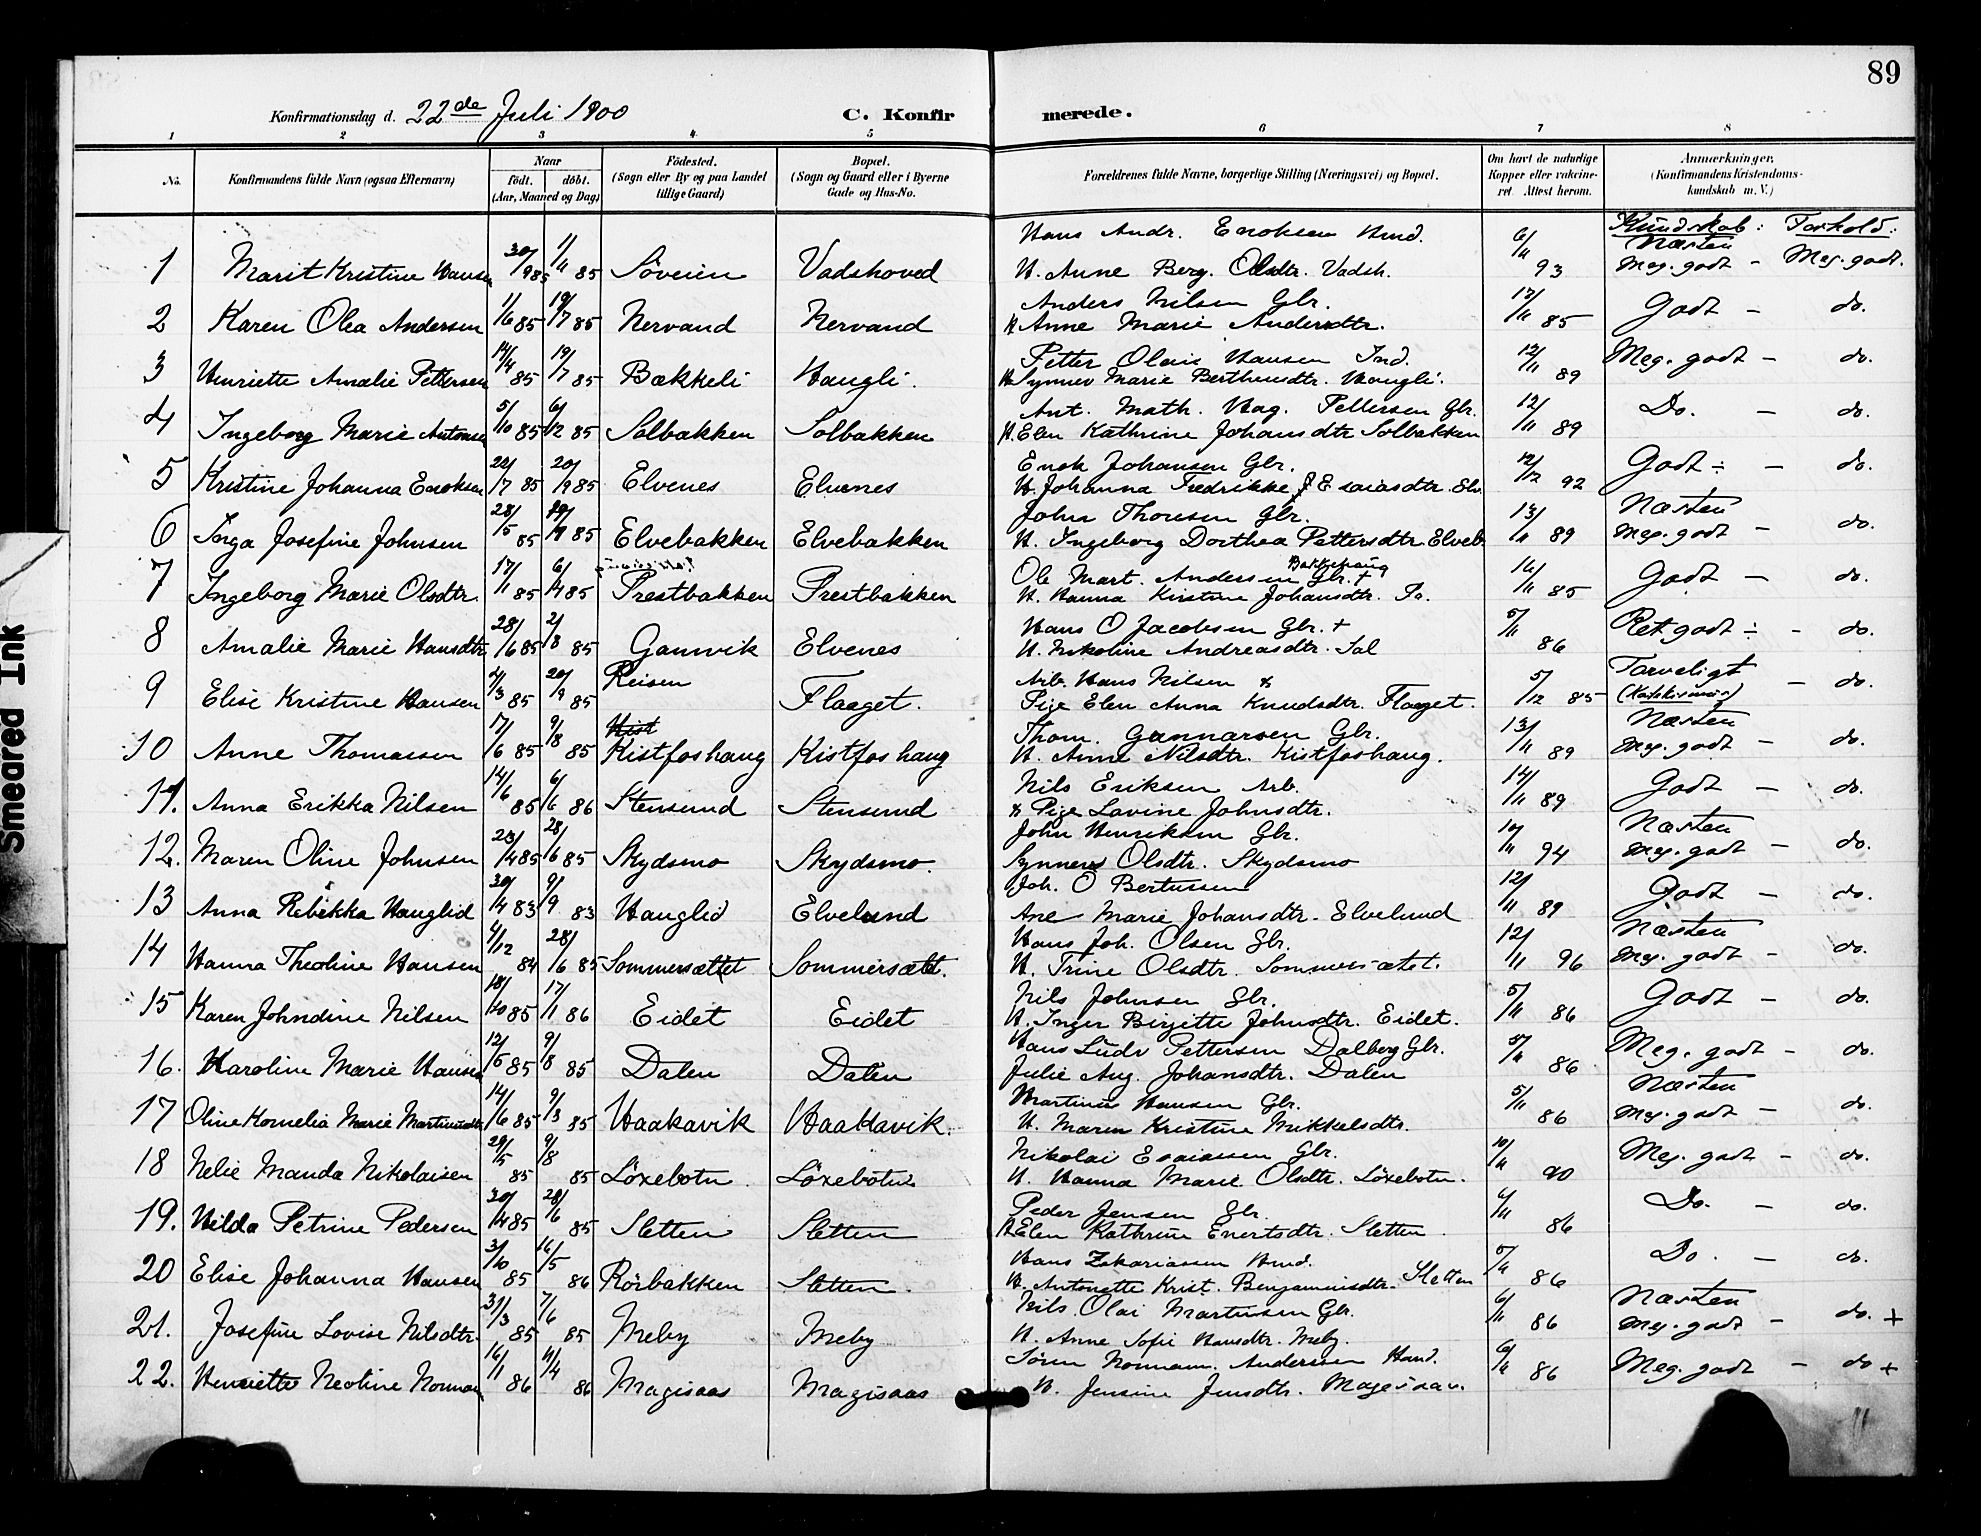 89
Konfirmationsdag d. 22de Juli 1900
C. Konfirmerede.
1 2 3 4 5 6 7 8
No.
Konfirmandens fulde Navn (ogsaa Efternavn)
Naar
födt. döbt.
(Aar, Maaned og Dag)
Födested.
(Sogn eller By og paa Landet
tillige Gaard)
Bopæl.
(Sogn og Gaard eller i Byerne
Gade og Hus-No.
Forældrenes fulde Navne, borgerlige Stilling (Næringsvei) og Bopæl.
Om havt de naturlige
Kopper eller vaccine-
ret. Attest herom.
Anmærkninger.
(Konfirmandens Kristendoms-
kundskab m. V.)
Kundskab: Forhold:
Hans Andr. Enoksen
Næsten
1 Marit Kristine Hansen 30/9 85 1/11 85 Söveien Vadshoved H. Anne Berg. Olsdtr. Vadsh. 6/11 93 Meg. godt - Meg. godt.
Anders Nilsen Gbr.
2 Karen Olea Andersen 1/6 85 19/7 85 Nervand Nervand H. Anne Marie Andersdtr. 17/11 85 Godt - do.
Petter Olais Hansen Ind.
3 Henriette Amalie Pettersen 14/4 85 19/7 85 Bakkeli Haugli. H. Synnev Marie Bertheusdtr. Haugli. 12/11 89 Meg. godt - do.
Ant. Math. Hag. Pettersen Gbr.
4 Ingeborg Marie Antonsen 5/10 85 6/12 85 Solbakken Solbakken H. Elen Kathrine Johansdtr Solbakken 12/11 89 Do. - do.
Enok Johansen Gbr.
5 Kristine Johanna Enoksen 22/7 85 20/9 85 Elvenes Elvenes H. Johanna Fredrikke Esaiasdtr. Elv. 12/12 92 Godt ÷ - do.
John Thoresen Gbr.
Næsten
6 Inga Josefine Johnsen 28/5 85 85 Elvebakken Elvebakken H. Ingeborg Dorthea Pettersdtr. Elveb 13/11 89 Meg. godt - do.
Ole Mart. Andersen Gbr. + Bakkehaug
7 Ingeborg Marie Olsdtr. 17/1 85 6/4 85 Prestbakken Prestbakken H. Hanna Kirstine Johansdtr. 16/11 85 Godt - do.
Hans O Jacobsen Gbr. +
8 Amalie Marie Hansdtr 28/6 85 2/8 85 Gamvik Elvenes H. Nikoline Andreasdtr. Sal 5/11 86 Ret godt ÷ - do.
Reisen
Arb. Hans Nilsen &
Tarveligt
9 Elise Kristine Hansen 4/3 85 20/9 85 Flaaget. Pige Elen Anna Knudsdtr. Flaaget. 5/12 85 - do.
Kist
Thom. Gunnarsen Gbr.
Næsten
10 Anne Thomassen 17/6 85 9/8 85 Kistfoshaug Kistfoshaug H. Anne Nilsdtr. Kistfoshaug. 13/11 89 Meg. godt - do.
Nils Eriksen Arb.
11. Anna Erikka Nilsen 14/6 85 6/6 86 Stensund Stensund & Pige Lavine Johnsdtr. 14/11 89 Godt - do.
John Henriksen Gbr.
Næsten
12. Maren Oline Johnsen 23/4 85 28/6 85 Skydsmo Skydsmo. Synnev Olsdtr. Skydsmo 10/11 94 Meg. godt - do.
Joh. O Bertussen
13 Anna Rebekka Hauglid 30/4 83 9/9 83 Hauglid Elvelund Ane Marie Johansdtr. Elvelund 12/11 89 Godt - do.
Hans Joh. Olsen Gbr.
Næsten
14 Hanna Theoline Hansen 4/12 84 28/6 85 Sommersættet Sommersætt. H. Trine Olsdtr. Sommersætet. 12/11 96 Meg. godt - do.
Nils Johnsen Gbr.
15 Karen Johndine Nilsen 18/10 85 17/1 86 Eidet Eidet H. Inger Birgitte Johnsdtr. Eidet. 5/11 86 Godt - do.
Hans Ludv Pettersen Dalberg Gbr.
16. Karoline Marie Hansen 12/5 85 9/8 85 Dalen Dalen Julie Aug. Johansdtr. Dalen 5/11 86 Meg. godt - do.
Martinus Hansen Gbr.
Næsten
17 Oline Kornelia Marie Martinusdtr 14/6 85 9/3 85 Haakavik Haakavik. H. Maren Kristine Mikkelsdtr. 5/11 86 Meg. godt - do.
Nikolai Esaiassen Gbr.
18 Nelie Manda Nikolaisen 29/5 85 9/8 85 Löxebotn Löxebotn H. Hanna Marie Olsdtr. Löxebotn. 10/11 90 Meg. godt - do.
Peder Jensen Gbr.
19. Hilda Petrine Pedersen 30/4 85 28/6 85 Sletten Sletten H. Elen Kathrine Enertsdtr. Sletten. 6/11 86 Do. - do.
Hans Zakariassen
20 Elise Johanna Hansen 3/10 85 16/5 86 Rörbakken Sletten. H. Antonette Krist. Benjaminsdtr. Sletten 5/11 86 Do. - do.
Nils Olai Martinsen Gbr.
Næsten
21. Josefine Lovise Nilsdtr. 31/3 85 7/6 85 Meby Meby H. Anne Sofie Hansdtr. Meby. 6/11 86 Meg. godt - do. +
Sören Normann Anderssen
22. Henriette Neoline Norman 16/1 86 11/4 86 Magisaas Magisaas H. Jensine Jensdtr. Magesaas. 6/11 86 Meg. godt - do +
Smeared Ink